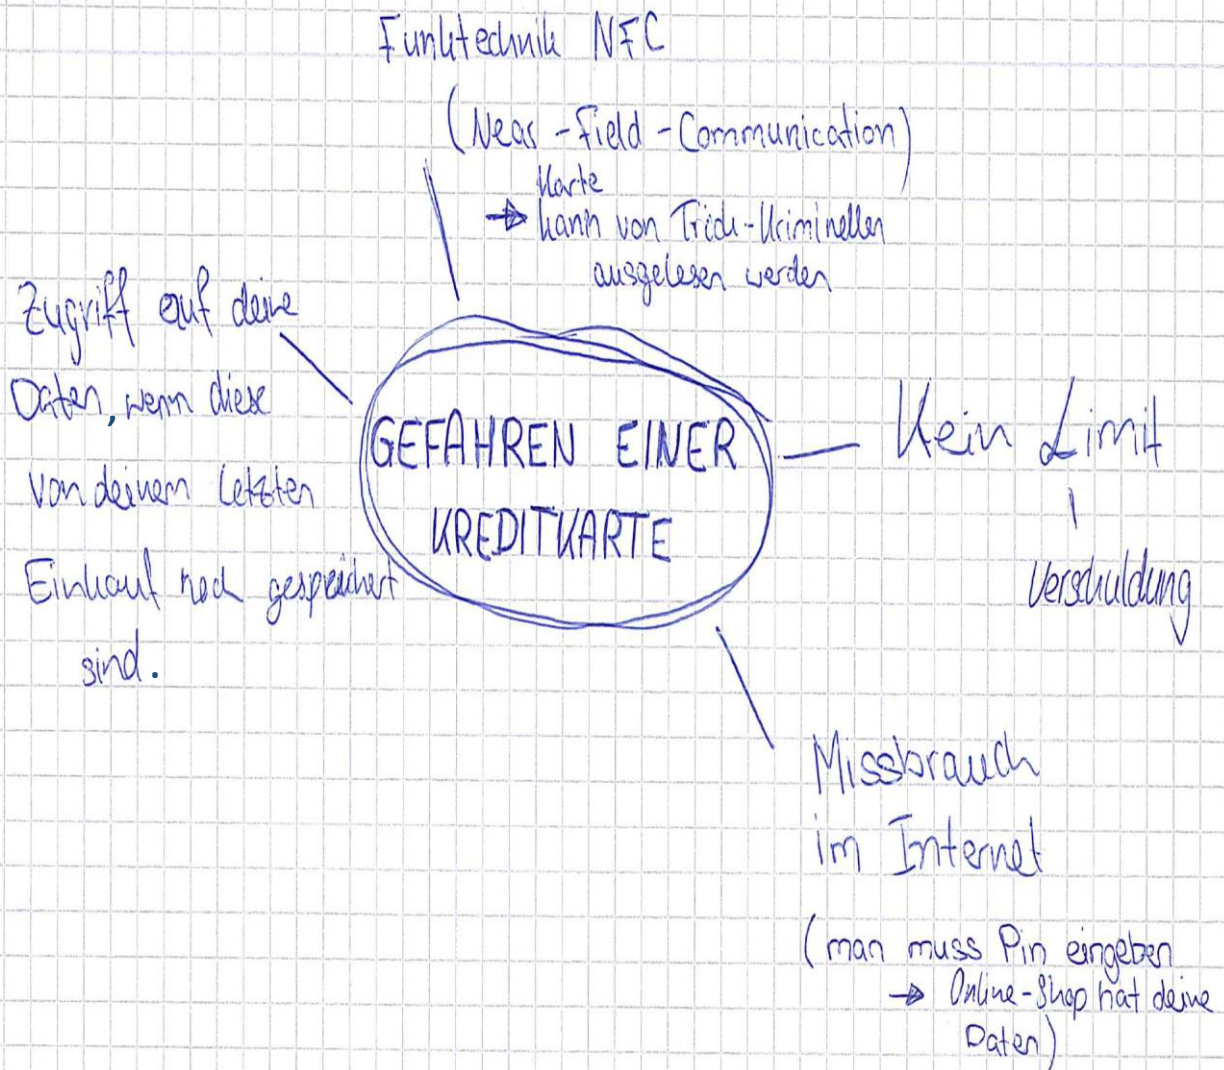 Funktechnik NFC
(Near-Field-Communication)
Karte
→ kann von Trick-Kriminellen
ausgelesen werden
Zugriff auf deine
Daten, wenn diese
von deinem letzten
Einkauf noch gespeichert
sind.
GEFAHREN EINER
KREDITKARTE
Kein Limit
Verschuldung
Missbrauch
im Internet
(man muss Pin eingeben
→ Online-Shop hat deine
Daten)